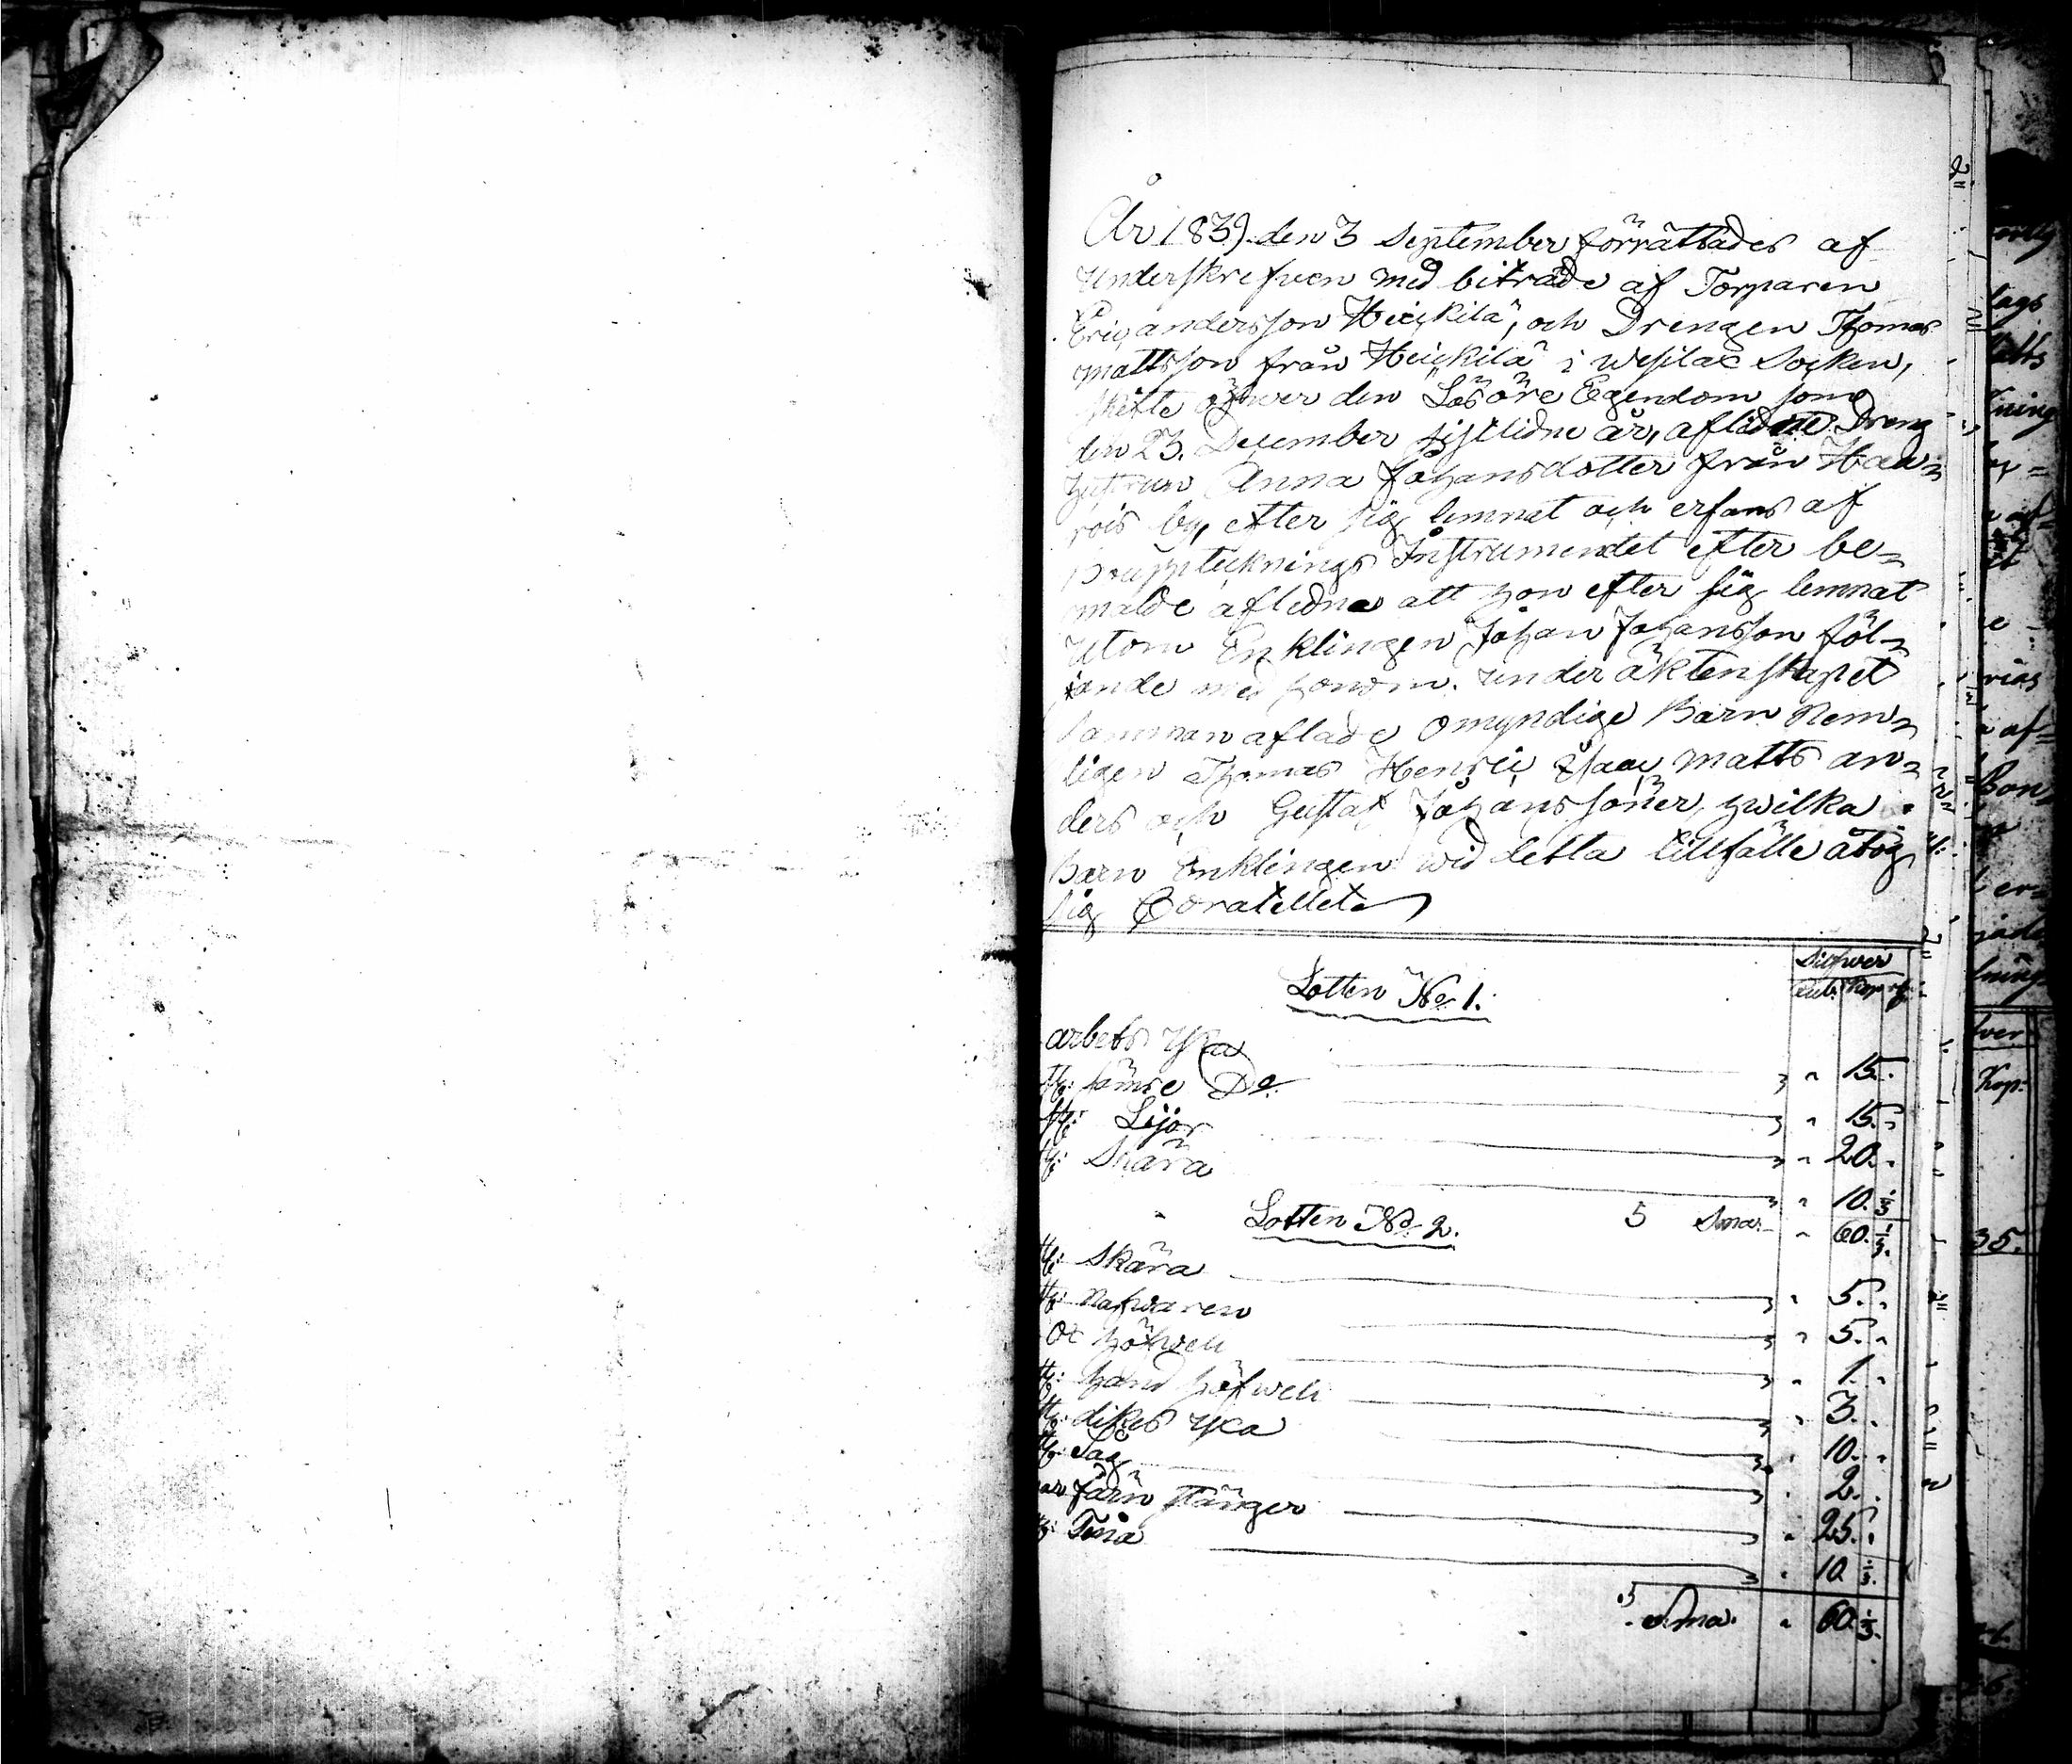 År 1839 den 3 September förrättades af
Underskrefven med biträde af Torparen
Eric andersson Heickilä, och Drengen Thomas
mattsson från Heickilä i westlax Socken,
skifte öfwer den Lösöre Egendom som
den 23. December sistlidne år, aflidne Dreng
hustrun Anna Johansdotter från Haa-
rois by, efter sig lemnat och erfans af
Boupptecknings Instrumentet efter be-
mälde aflidna att hon efter sig lemnat
utom Enklingen Johan Johansson föl-
jande med honom under äktenskapet
samman aflade omyndige Barn nem-
ligen Thomas Henric Isaac matts an-
ders och Gustaf Johans söner, hwilka
Barn Enklingen wid detta tillfälle åtog
sig
Silfwer
Lotten No 1. Rub. Kop
arbets yxa " 15. "
st: sämre Do " 15. "
st: Lijor " 20. "
st: Skära " 10. 1/3
Lotten No 2. S Sma. " 60. 1/3.
st: Skära " 5. "
st: nafwaren " 5. "
st: höfweli " 1. "
st: hand höfweli " 3. "
st: dikes yxa " 10. "
st: Såg " 2. "
par järn stänger " 25. "
st: Tina " 10. 1/3.
S Sma. " 60. 1/3.
35.